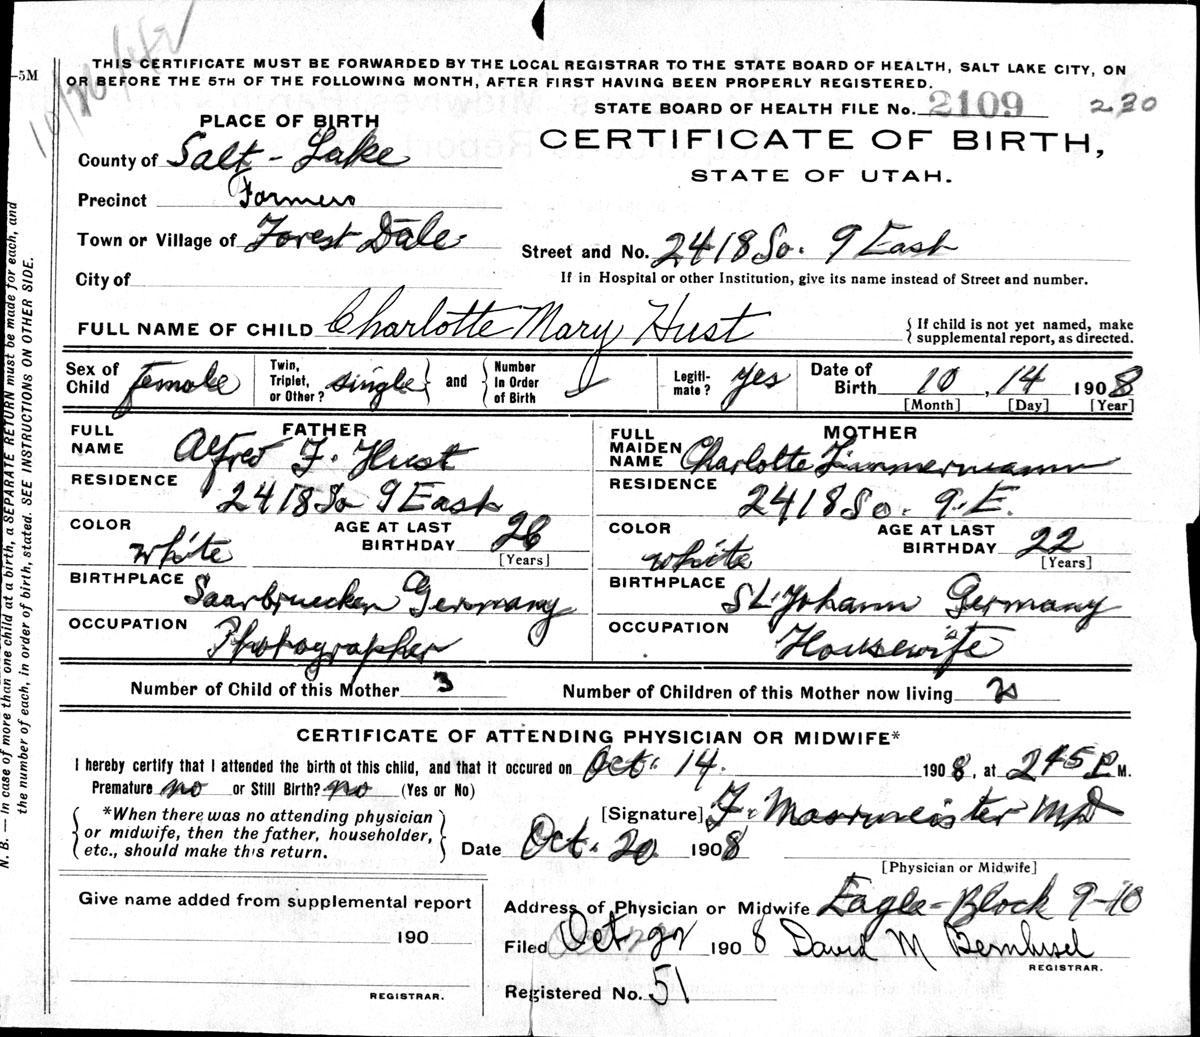 THIS CERTIFICATE MUST BE FORWARDED BY THE LOCAL REGISTRAR TO THE STATE BOARD OF HEALTH, SALT LAKE CITY, ON
OR BEFORE THE 5TH OF THE FOLLOWING MONTH, AFTER FIRST HAVING BEEN PROPERLY REGISTERED.
–5M
STATE BOARD OF HEALTH FILE No. 2109 230
PLACE OF BIRTH
CERTIFICATE OF BIRTH,
STATE OF UTAH.
County of Salt-Lake
Precinct Farmers
Town or Village of Forest Dale
Street and No. 2418 So. 9 East
If in Hospital or other Institution, give its name instead of Street and number.
City of
FULL NAME OF CHILD Charlotte Mary Hust
If child is not yet named, make supplemental report, as directed.
Sex of Child female
Twin, Triplet, or Other? single and Number In Order of Birth
Legiti- mate? yes
Date of Birth 10, 14 1908
[Month] [Day] [Year]
FATHER
FULL NAME Alfred F. Hust
RESIDENCE 2418 So 9 East
COLOR white AGE AT LAST BIRTHDAY 28 [Years]
BIRTHPLACE Saarbruecken Germany
OCCUPATION Photographer
MOTHER
FULL MAIDEN NAME Charlotte Zimmermann
RESIDENCE 2418 So. 9. E.
COLOR white AGE AT LAST BIRTHDAY 22 [Years]
BIRTHPLACE St. Johann Germany
OCCUPATION Housewife
Number of Child of this Mother 3 Number of Children of this Mother now living 2
CERTIFICATE OF ATTENDING PHYSICIAN OR MIDWIFE*
I hereby certify that I attended the birth of this child, and that it occured on Oct. 14. 1908, at 245 P.M.
Premature no or Still Birth? no (Yes or No)
*When there was no attending physician
or midwife, then the father, householder,
etc., should make this return.
[Signature] F. Moormeister MD
Date Oct. 20 1908
[Physician or Midwife]
Give name added from supplemental report
190
REGISTRAR.
Address of Physician or Midwife Eagle-Block 9-10
Filed Oct 1908 David M Bernhisel
REGISTRAR.
Registered No. 51
N. B. — In case of more than one child at a birth, a SEPARATE RETURN must be made for each, and
the number of each, in order of birth, stated. SEE INSTRUCTIONS ON OTHER SIDE.